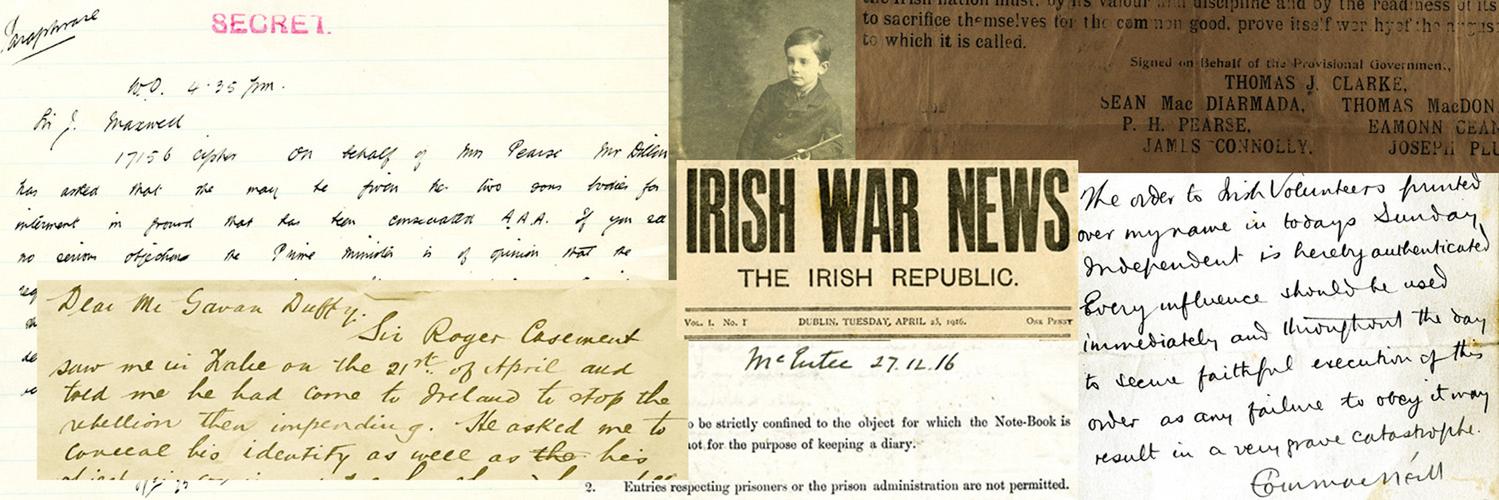 Paraphrase
SECRET.
W.O. 4.35 pm.
Sir J. Maxwell
17156 cipher On behalf of Mrs Pearse Mr Dillon
has asked that she may be given her two sons bodies for
interment in ground that has been consecrated A.A.A. If you see
no serious objections the Prime Minister is of opinion that the
Dear Mr Gavan Duffy.
Sir Roger Casement
saw me in Tralee on the 21st. of April and
told me he had come to Ireland to stop the
rebellion then impending. He asked me to
conceal his identity as well as the his
IRISH WAR NEWS
THE IRISH REPUBLIC.
VOL. 1. No. 1 DUBLIN, TUESDAY, APRIL 25, 1916. ONE PENNY
McEntee 27.12.16
o be strictly confined to the object for which the Note-Book is
not for the purpose of keeping a diary.
2. Entries respecting prisoners or the prison administration are not permitted.
the Irish nation must, by its valour and discipline and by the readiness of its
to sacrifice themselves for the common good, prove itself worthy of the august
to which it is called.
Signed on Behalf of the Provisional Government,
THOMAS J. CLARKE,
SEAN Mac DIARMADA, THOMAS MacDON
P. H. PEARSE, EAMONN CEAN
JAMES CONNOLLY, JOSEPH PLU
The order to Irish Volunteers printed
over my name in today's Sunday
Independent is hereby authenticated
Every influence should be used
immediately and throughout the day
to secure faithful execution of this
order as any failure to obey it may
result in a very grave catastrophe.
Eoin MacNeill